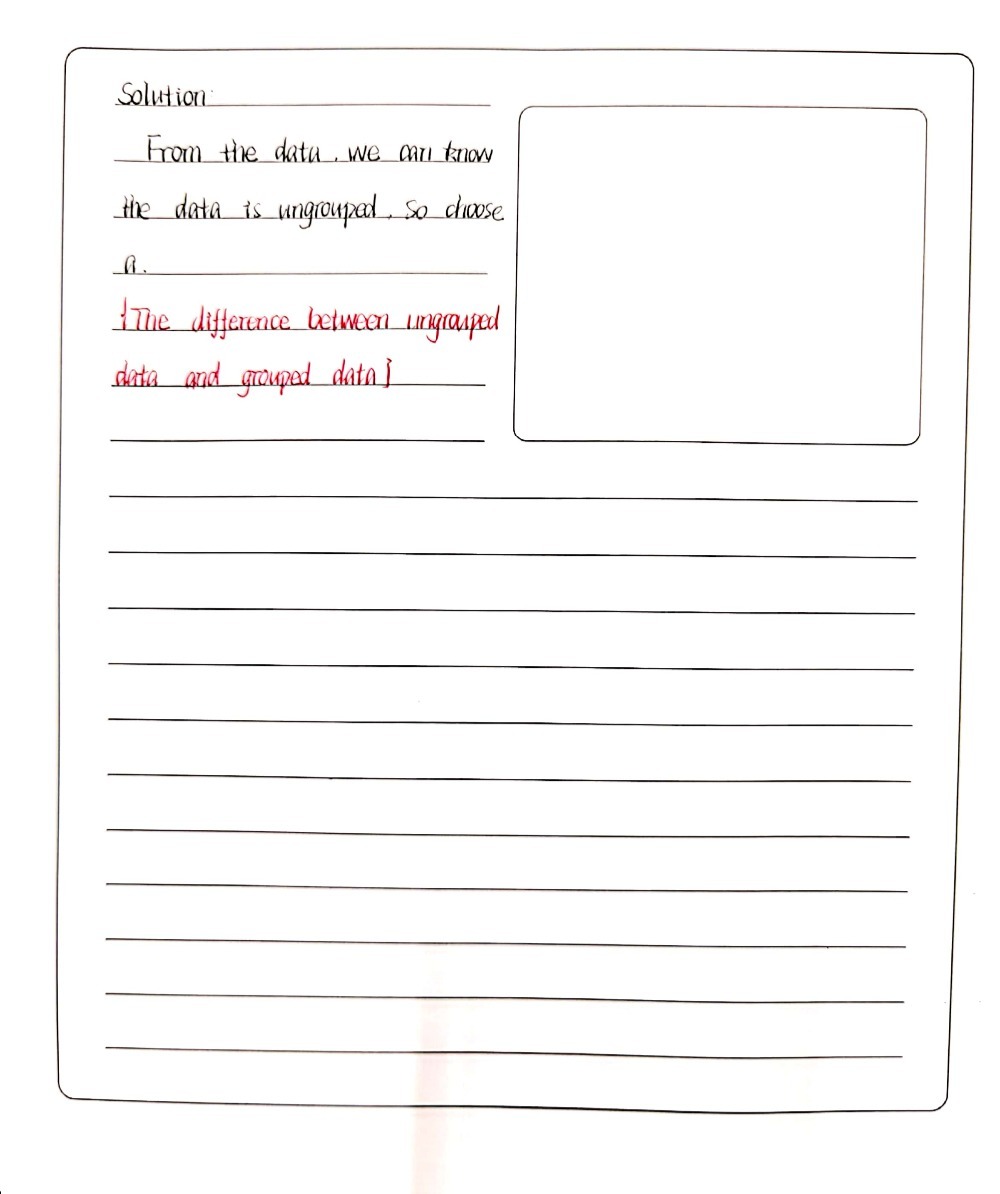 Solution:
From the data, we can know
the data is ungrouped, so choose
a.
[The difference between ungrouped
data and grouped data]